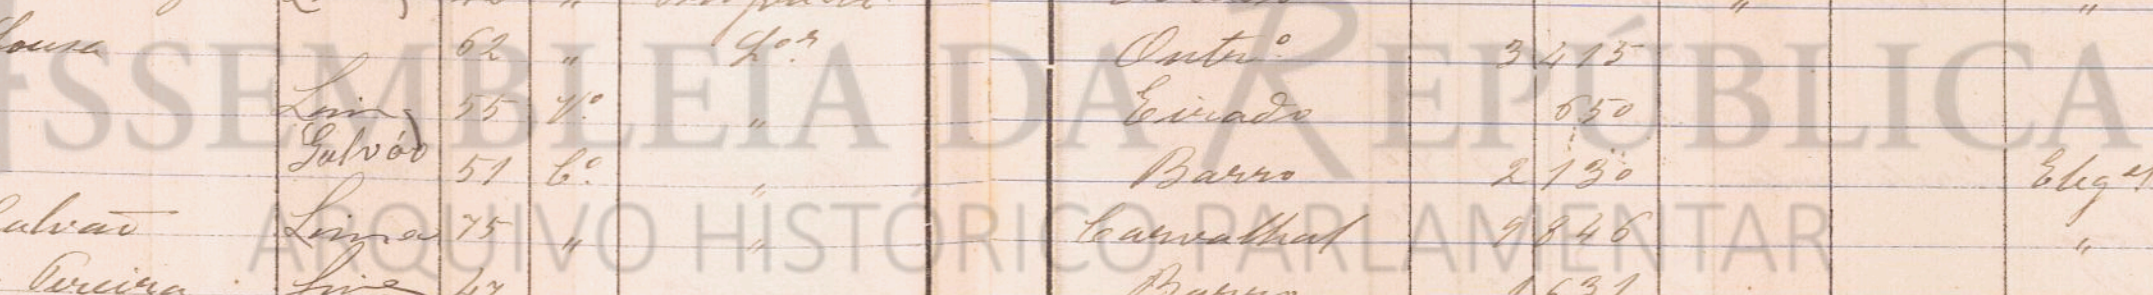 Sousa 62 " L.or Outr.o 3 415
55 V.o " Eirado 650
Galvão 51 C.o " Barro 2 130 Eleg.el
Galvão Lima 75 " " Carvalhal 9 846 "
Pereira 47 Barro 1 631
ASSEMBLEIA DA REPÚBLICA
ARQUIVO HISTÓRICO PARLAMENTAR